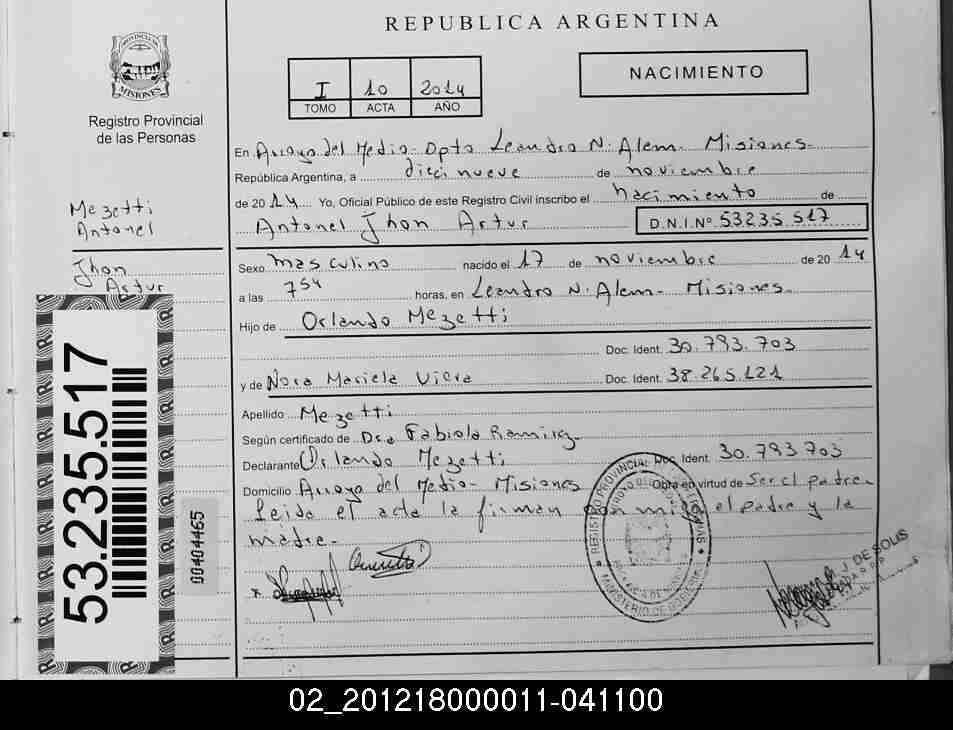 REPUBLICA ARGENTINA
PROVINCIA DE
MISIONES
Registro Provincial
de las Personas
I 10 2014
TOMO ACTA AÑO
NACIMIENTO
En Arroyo del Medio - Dpto Leandro N. Alem - Misiones -
República Argentina, a diecinueve de noviembre
de 2014 Yo, Oficial Público de este Registro Civil inscribo el nacimiento de
Antonel Jhon Artur D.N.I.Nº 53235517
Sexo masculino nacido el 17 de noviembre de 2014
a las 754 horas, en Leandro N. Alem - Misiones -
Hijo de Orlando Mezetti
Doc. Ident. 30.793.703
y de Nora Mariela Viera Doc. Ident. 38.265.121
Apellido Mezetti
Según certificado de Dra Fabiola Ramirez
Declarante Orlando Mezetti Doc. Ident. 30.793703
Domicilio Arroyo del Medio - Misiones Obra en virtud de Ser el padre -
Leida el acta la firman con migo el padre y la
madre -
Mezetti
Antonel
Jhon
Artur
53.235.517
00404465
REGISTRO PROVINCIAL DE LAS PERSONAS
MINISTERIO DE GOBIERNO
J. DE SOLIS
02_201218000011-041100